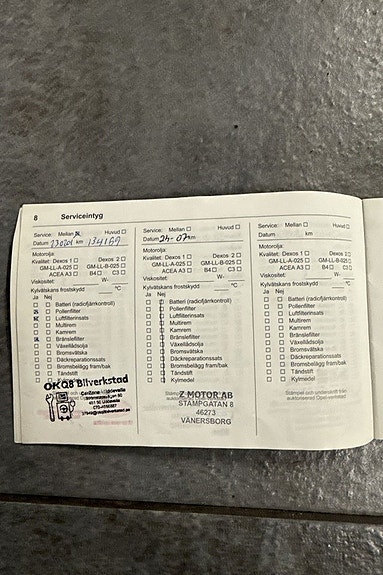 8 Serviceintyg
Service: Mellan ☒ Huvud ☐
Datum 230201 km 134169
Motorolja:
Kvalitet: Dexos 1 ☐ Dexos 2 ☐
GM-LL-A-025 ☐ GM-LL-B-025 ☐
ACEA A3 ☐ B4 ☐ C3 ☐
Viskositet: W-
Kylvätskans frostskydd °C
Ja Nej
Batteri (radiofjärrkontroll)
Pollenfilter
Luftfilterinsats
Multirem
Kamrem
Bränslefilter
Växellådsolja
Bromsvätska
Däckreparationssats
Bromsbelägg fram/bak
Tändstift
Kylmedel
OKQ8 Bilverkstad
Service: Mellan ☐ Huvud ☐
Datum 24-07 km
Motorolja:
Kvalitet: Dexos 1 ☐ Dexos 2 ☐
GM-LL-A-025 ☐ GM-LL-B-025 ☐
ACEA A3 ☐ B4 ☐ C3 ☐
Viskositet: W-
Kylvätskans frostskydd °C
Ja Nej
Batteri (radiofjärrkontroll)
Pollenfilter
Luftfilterinsats
Multirem
Kamrem
Bränslefilter
Växellådsolja
Bromsvätska
Däckreparationssats
Bromsbelägg fram/bak
Tändstift
Kylmedel
Z MOTOR AB
STAMPGATAN 8
46273
VÄNERSBORG
Service: Mellan ☐ Huvud ☐
Datum km
Motorolja:
Kvalitet: Dexos 1 ☐ Dexos 2 ☐
GM-LL-A-025 ☐ GM-LL-B-025 ☐
ACEA A3 ☐ B4 ☐ C3 ☐
Viskositet: W-
Kylvätskans frostskydd °C
Ja Nej
Batteri (radiofjärrkontroll)
Pollenfilter
Luftfilterinsats
Multirem
Kamrem
Bränslefilter
Växellådsolja
Bromsvätska
Däckreparationssats
Bromsbelägg fram/bak
Tändstift
Kylmedel
Stämpel och underskrift från
auktoriserad Opel-verkstad